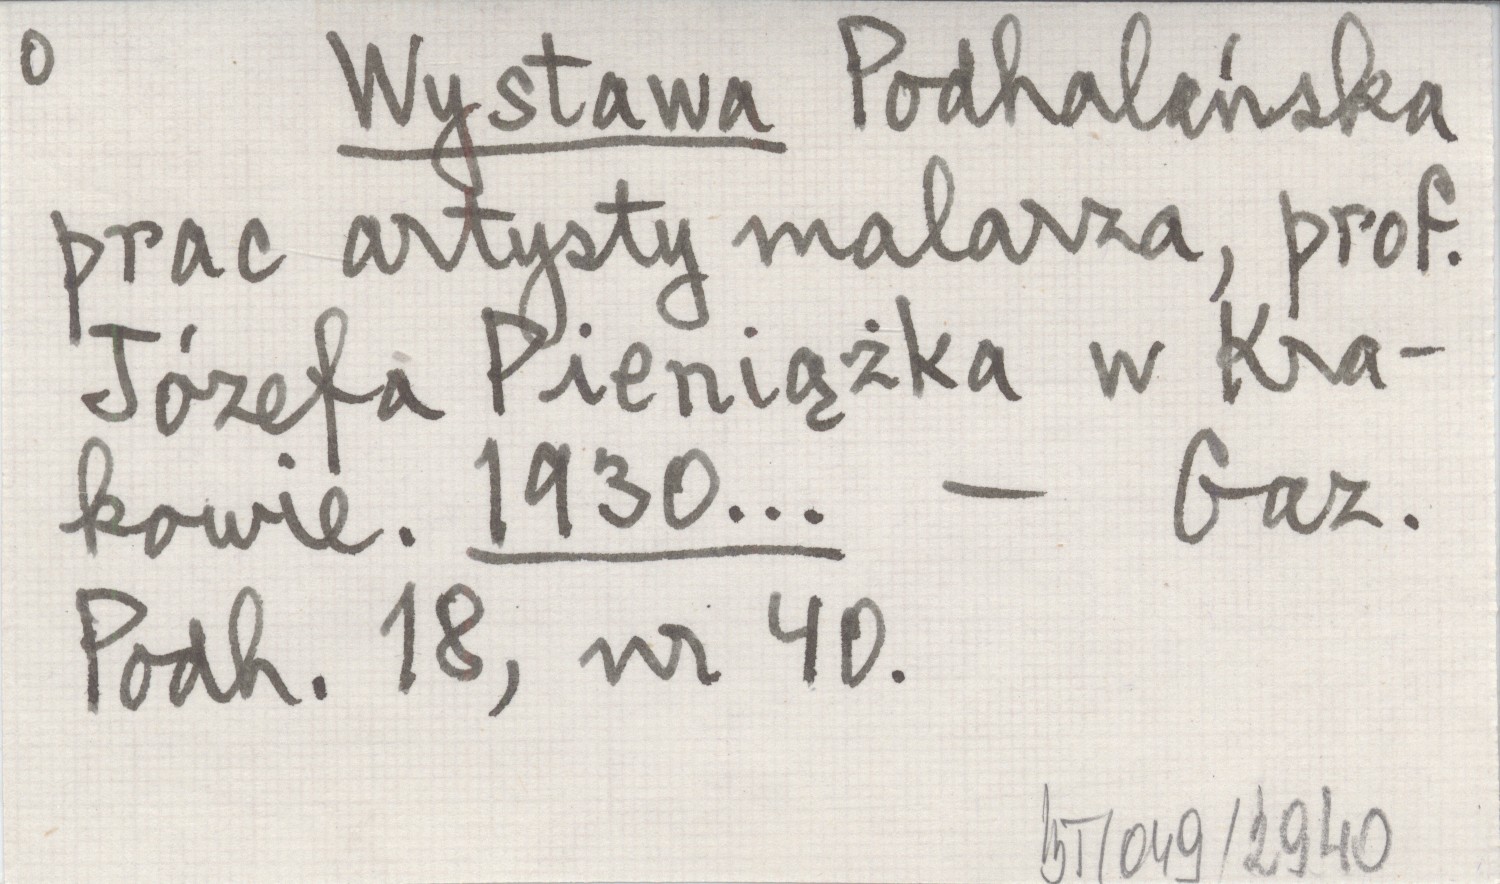 0 Wystawa Podhalańska
prac artysty malarza, prof.
Józefa Pieniążka w Kra-
kowie. 1930... — Gaz.
Podh. 18, nr 40.
BT/049/2940